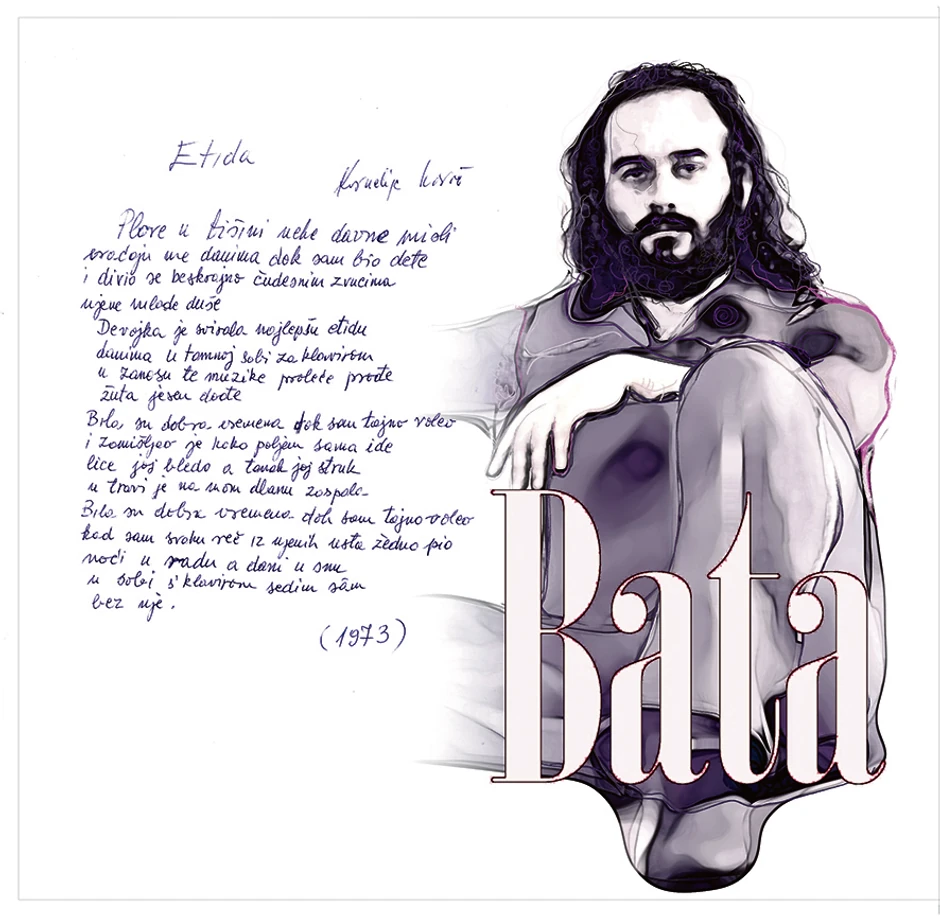 Etida
Kornelije Kovač
Plove u tišini neke davne misli
vraćaju me danima dok sam bio dete
i divio se beskrajno čudesnim zvucima
njene mlade duše
Devojka je svirala najlepšu etidu
danima u tamnoj sobi za klavirom
u zanosu te muzike proleće prođe
žuta jesen dođe
Bila su dobra vremena dok sam tajno voleo
i zamišljao je kako poljem sama ide
lice joj bledo a tanak joj struk
u travi je na mom dlanu zaspala
Bila su dobra vremena dok sam tajno voleo
kad sam svaku reč iz njenih usta žedno pio
noći u radu a dani u snu
u sobi s'klavirom sedim sâm
bez nje.
(1973)
Bata